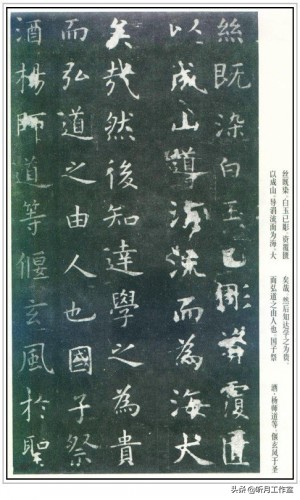 絲既染白玉已彫資覆匱
以成山導涓流而為海大
矣哉然後知達學之為貴
而弘道之由人也國子祭
酒楊師道等偃玄風於聖
丝既染,白玉已彫,资覆匮
以成山,导涓流而为海,大
矣哉,然后知达学之为贵,
而弘道之由人也。国子祭
酒、杨师道等,偃玄风于圣
头条 @听月工作室